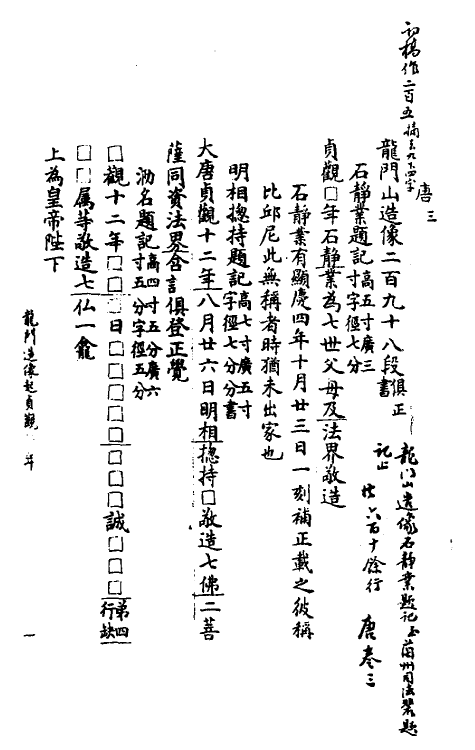 龍门山造像石靜業題記至蘭州司法
記止
共六百十餘行 唐卷三
初稿作二百五
唐三
龍門山造像二百九十八段俱正書
石靜業題記高五寸廣三寸字徑七分
貞觀□年石靜業為七世父母及法界敬造
石靜業有顯慶四年十月廿三日一刻補正載之彼稱
比邱尼此無稱者時猶未出家也
明相揔持題記高七寸廣五寸字徑七分分書
大唐貞觀十二年八月廿六日明相揔持□敬造七佛二菩
薩同資法界含識俱登正覺
泐名題記高四寸五分廣六寸五分字徑五分
□觀十二年□□日□□□□□□□誠□□□第四行缺
□□属等敬造七仏一龕
上為皇帝陛下
龍門造像起貞觀 年
一